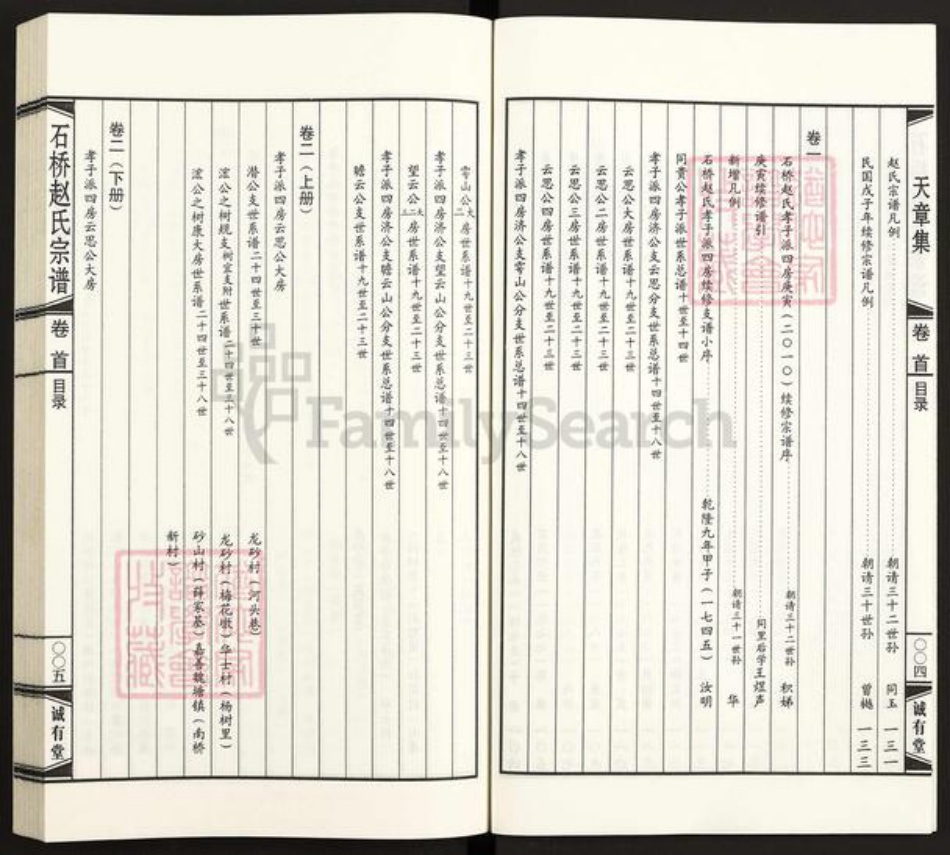 天章集
卷首
目录
〇〇四
诚有堂
赵氏宗谱凡例 朝请三十二世孙 同玉 一三一
民国戊子年续修宗谱凡例 朝请三十世孙 曾樾 一三三
卷一
石桥赵氏孝子派四房庚寅（二〇一〇）续修宗谱序 朝请三十二世孙 积娣
庚寅续修谱引 同里后学王煜声
新增凡例 朝请三十一世孙 华
石桥赵氏孝子派四房续修支谱小序 乾隆九年甲子（一七四五） 汝明
同贵公孝子派世系总谱十世至十四世
孝子派四房济公支云思分支世系总谱十四世至十八世
云思公大房世系谱十九世至二十三世
云思公二房世系谱十九世至二十三世
云思公三房世系谱十九世至二十三世
云思公四房世系谱十九世至二十三世
孝子派四房济公支雩山公分支世系总谱十四世至十八世
雩山公大二房世系谱十九世至二十三世
孝子派四房济公支望云山公分支世系总谱十四世至十八世
望云公大二三房世系谱十九世至二十三世
孝子派四房济公支瞻云山公分支世系总谱十四世至十八世
瞻云公支世系谱十九世至二十三世
卷二（上册）
孝子派四房云思公大房
潜公支世系谱二十四世至三十世 龙砂村（河头巷）
浤公之树规支树宗支附世系谱二十四世至三十八世 龙砂村（梅花墩）华士村（杨树里）
浤公之树康大房世系谱二十四世至三十八世 砂山村（薛家基）嘉善魏塘镇（南桥
新村）
卷二（下册）
孝子派四房云思公大房
石桥赵氏宗谱
卷首
目录
〇〇五
诚有堂
FamilySearch